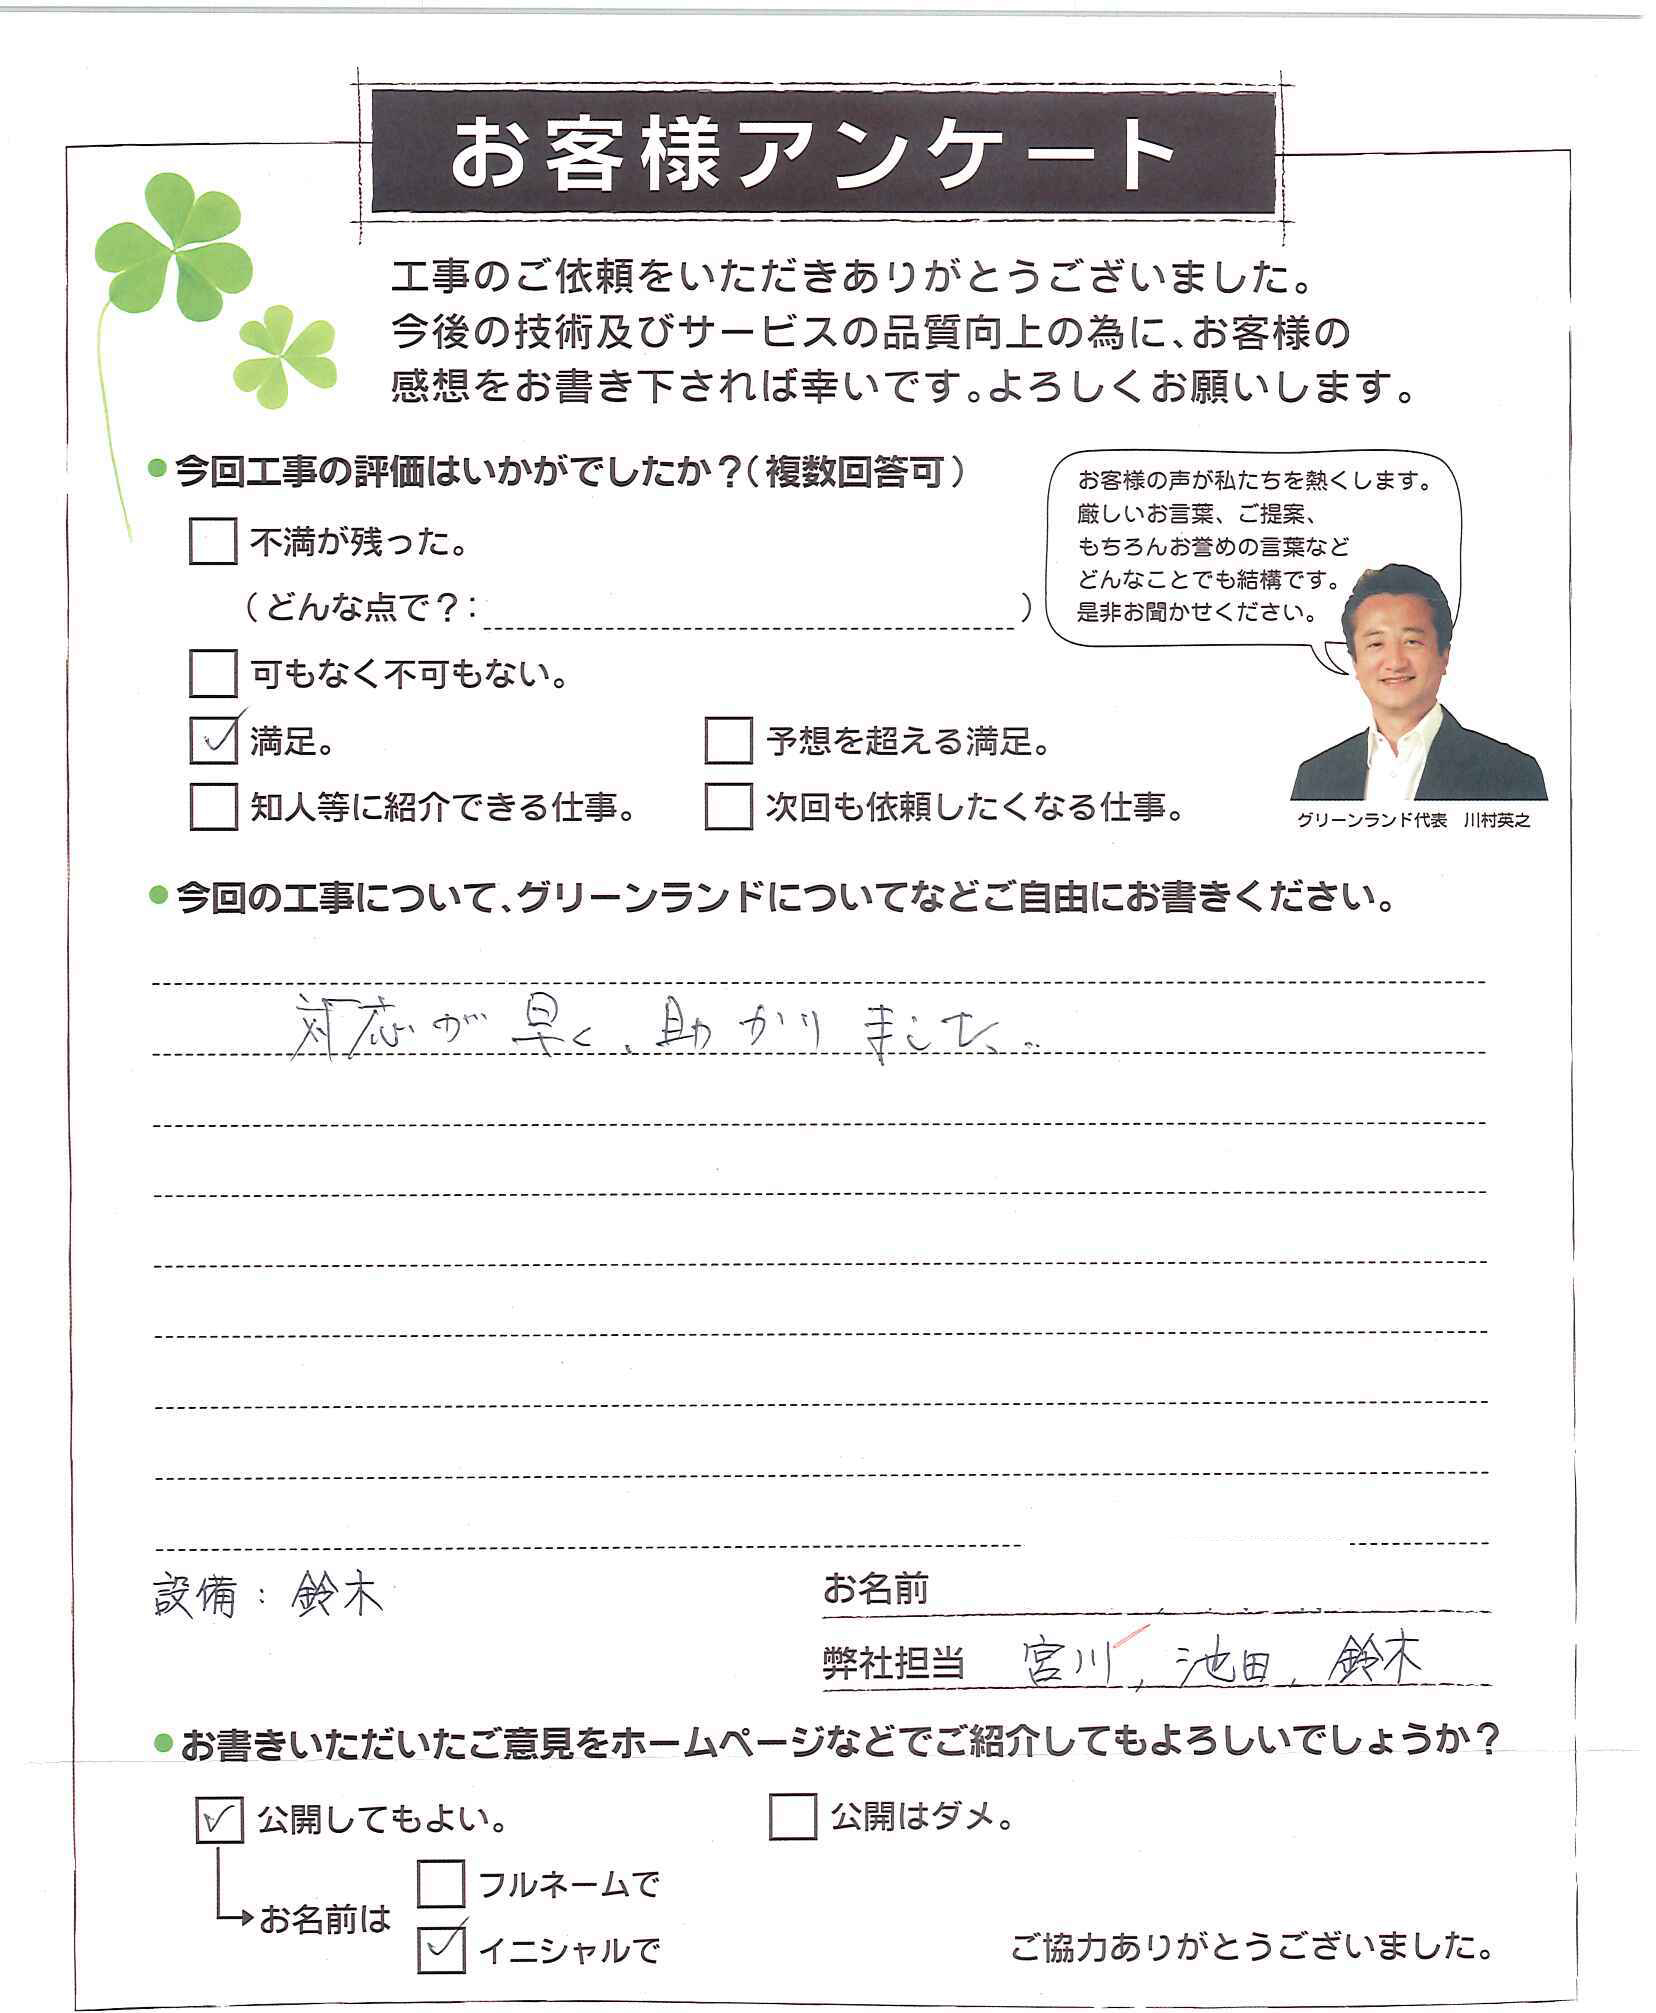 お客様アンケート
工事のご依頼をいただきありがとうございました。
今後の技術及びサービスの品質向上の為に、お客様の
感想をお書き下されば幸いです。よろしくお願いします。
●今回工事の評価はいかがでしたか？(複数回答可)
不満が残った。
(どんな点で？: )
可もなく不可もない。
満足。
予想を超える満足。
知人等に紹介できる仕事。
次回も依頼したくなる仕事。
お客様の声が私たちを熱くします。
厳しいお言葉、ご提案、
もちろんお誉めの言葉など
どんなことでも結構です。
是非お聞かせください。
グリーンランド代表 川村英之
●今回の工事について、グリーンランドについてなどご自由にお書きください。
対応が早く、助かりました。
設備: 鈴木
お名前
弊社担当 宮川, 池田, 鈴木
●お書きいただいたご意見をホームページなどでご紹介してもよろしいでしょうか？
公開してもよい。
公開はダメ。
お名前は
フルネームで
イニシャルで
ご協力ありがとうございました。